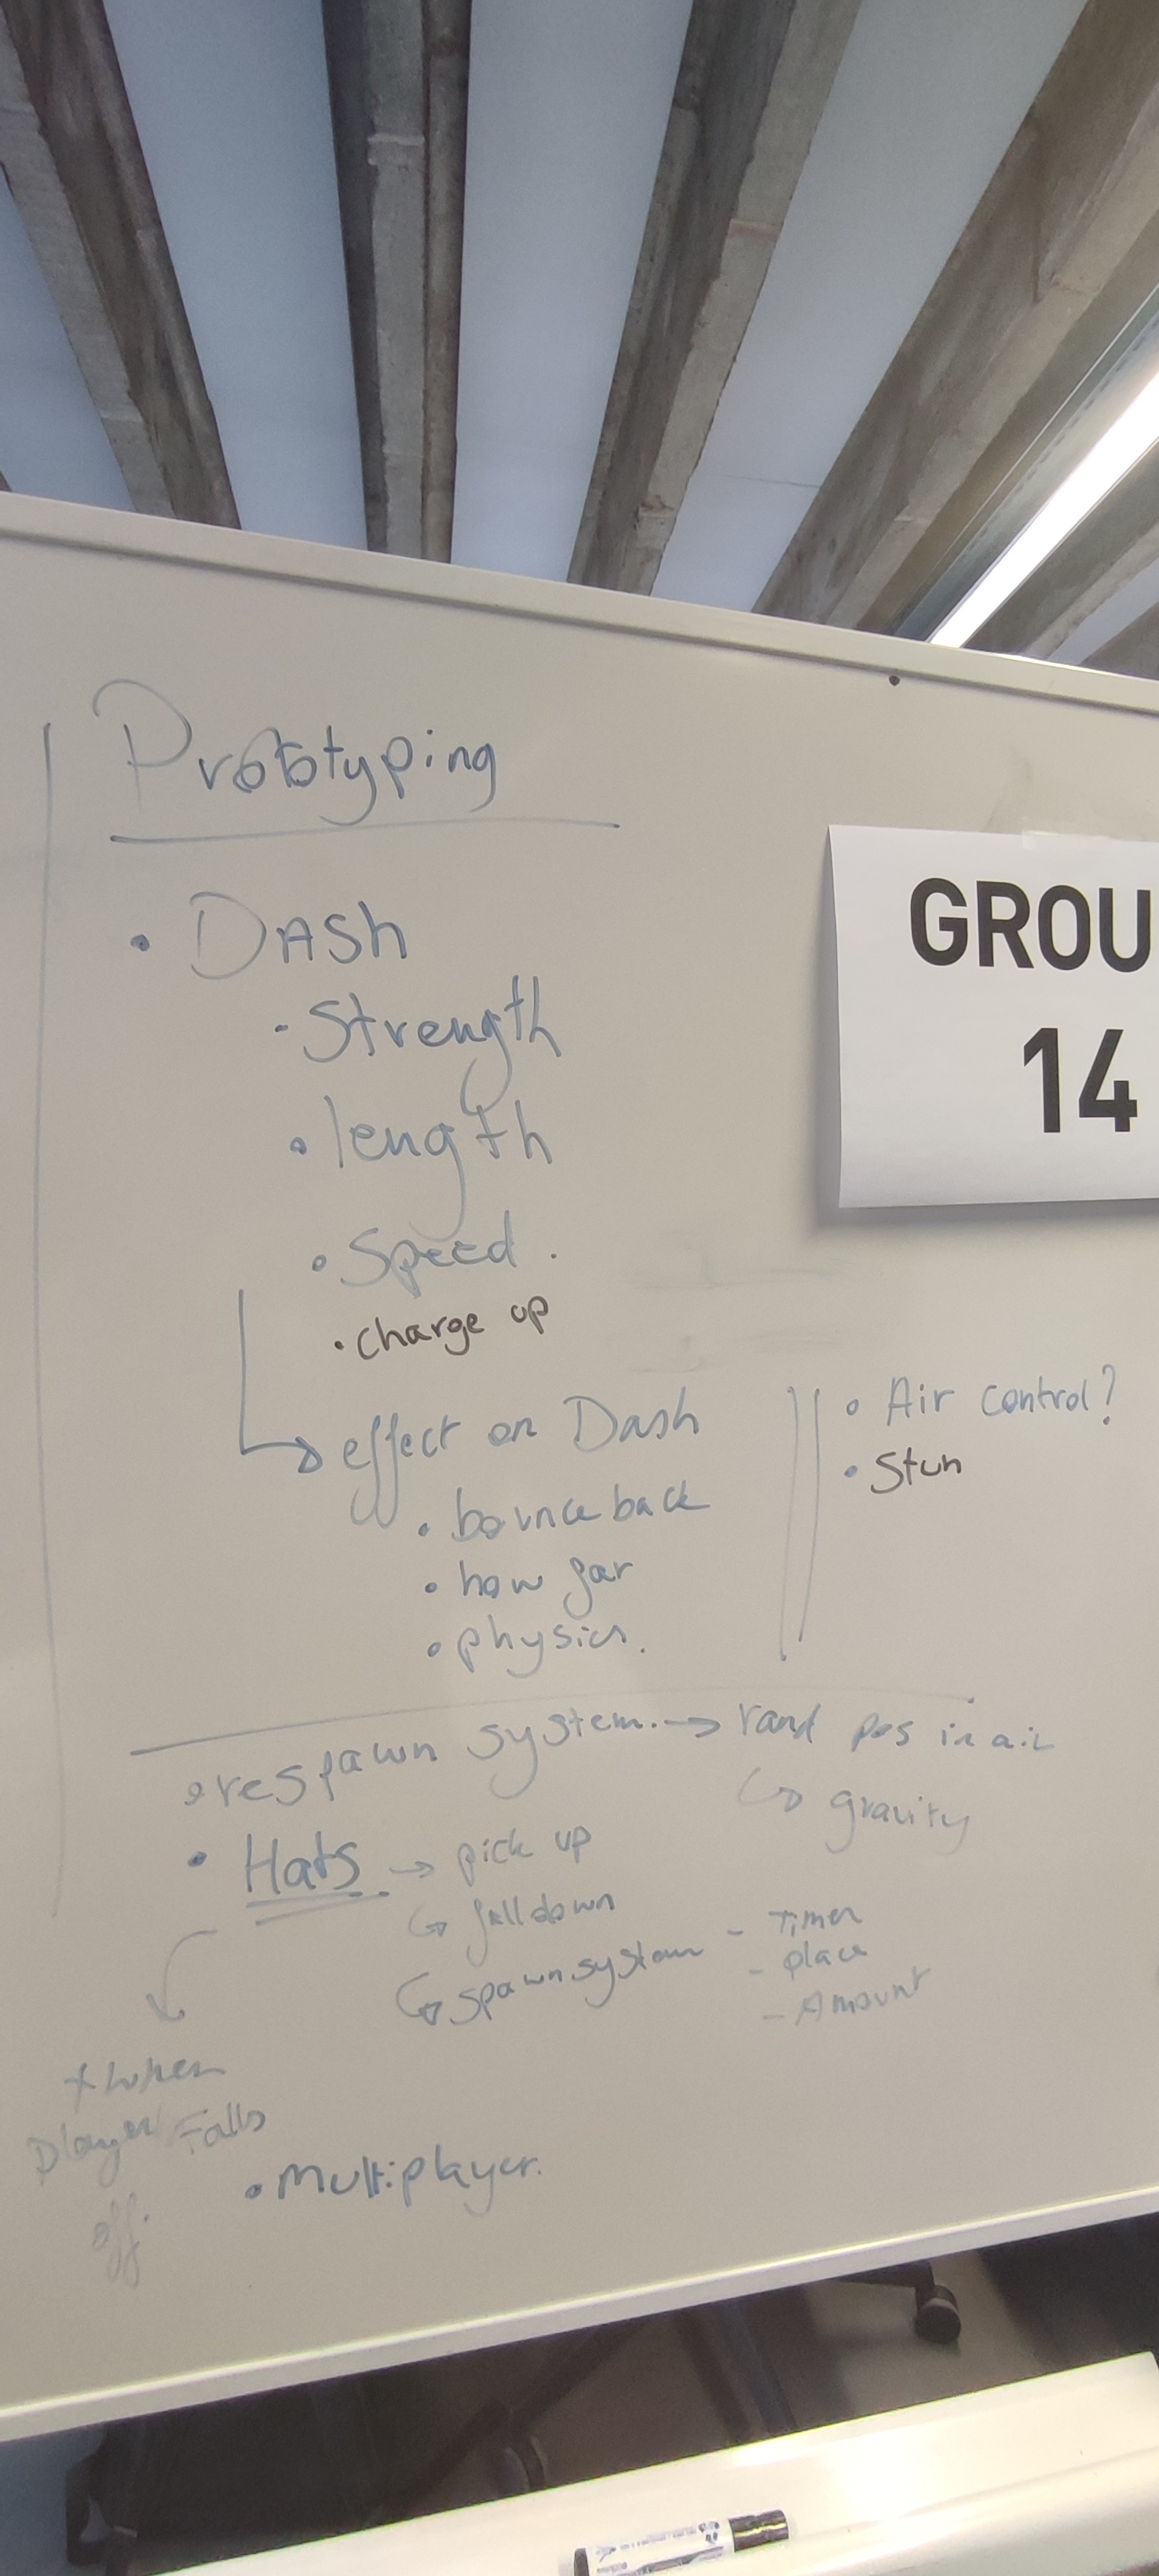 Prototyping
GROU
14
• DASh
- Strength
• length
• Speed.
• charge up
→ effect on Dash
• bounce back
• how far
• physics.
• Air control?
• Stun
• respawn system. → rand pos in air
↳ gravity
• Hats → pick up
↳ fall down
↳ spawn system - Timer
- place
- Amount
when
Player Falls
off.
• Multiplayer.